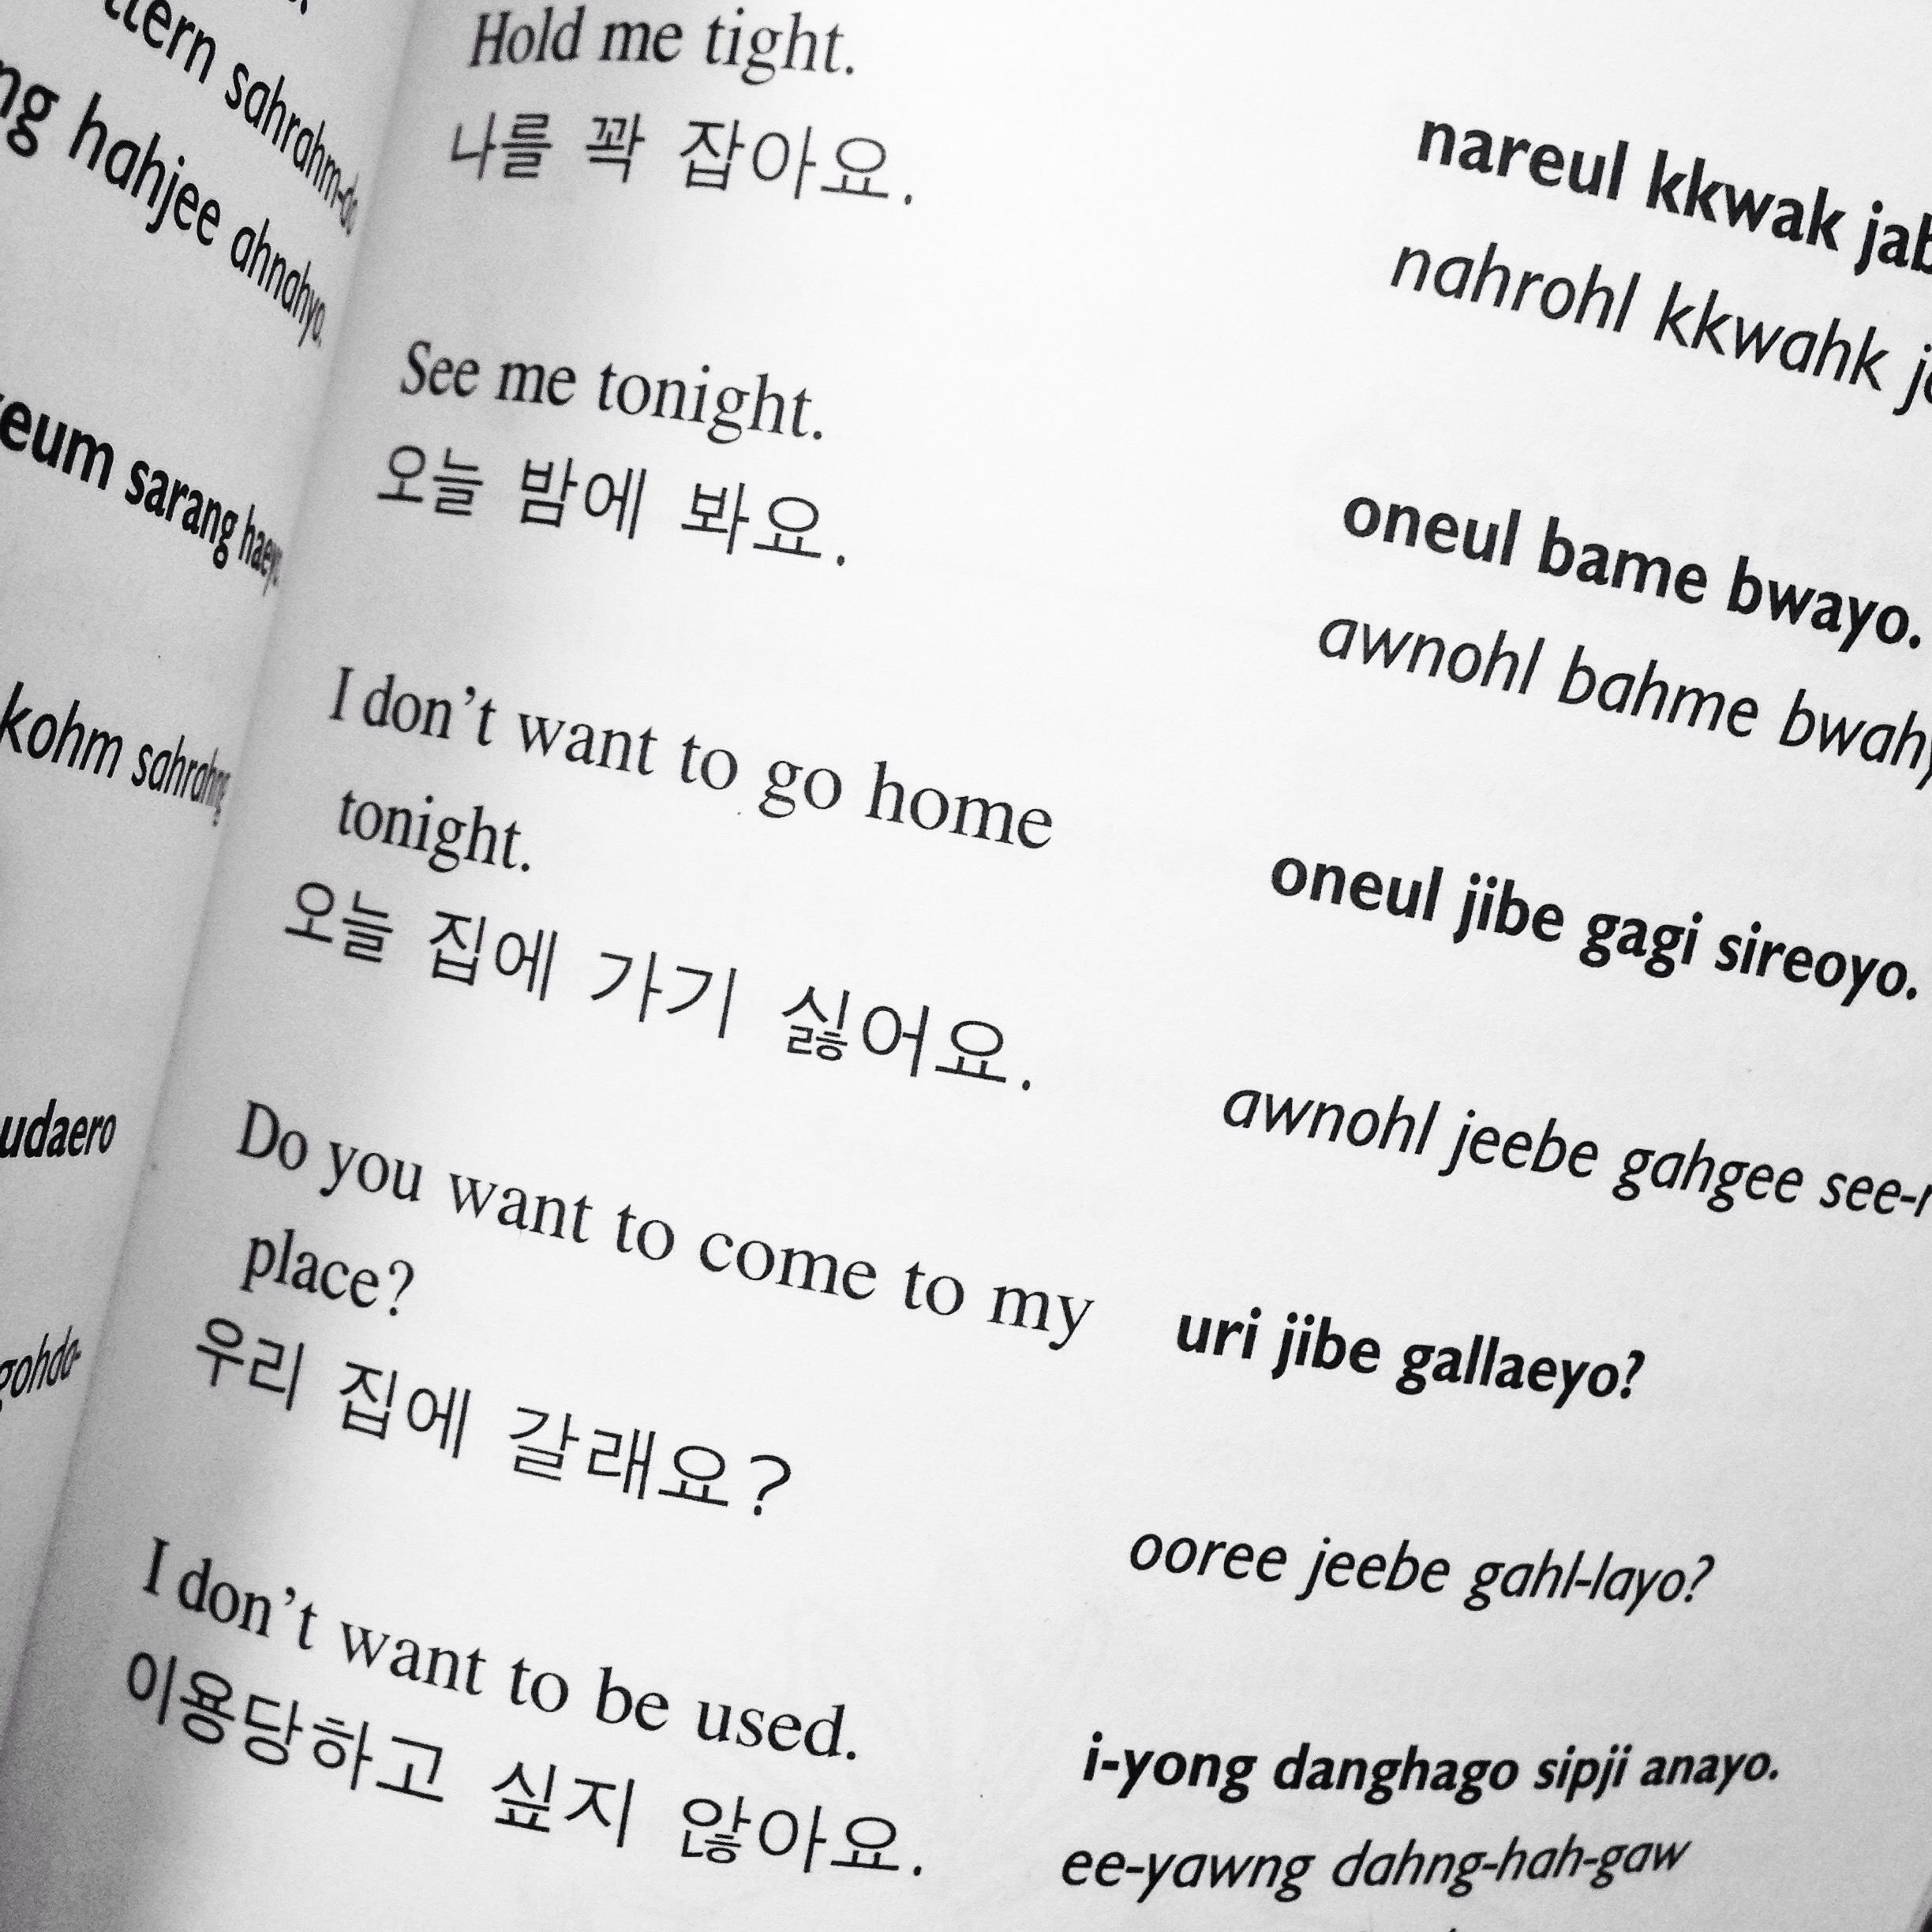 sahrahm-do
hahjee ahnahyo.
sarang haeyo
kohm sahrahng
Hold me tight.
나를 꽉 잡아요.
nareul kkwak
nahrohl kkwahk
See me tonight.
오늘 밤에 봐요.
oneul bame bwayo.
awnohl bahme
I don't want to go home
tonight.
오늘 집에 가기 싫어요.
oneul jibe gagi sireoyo.
awnohl jeebe gahgee
Do you want to come to my
place?
우리 집에 갈래요?
uri jibe gallaeyo?
ooree jeebe gahl-layo?
I don't want to be used.
이용당하고 싶지 않아요.
i-yong danghago sipji anayo.
ee-yawng dahng-hah-gaw